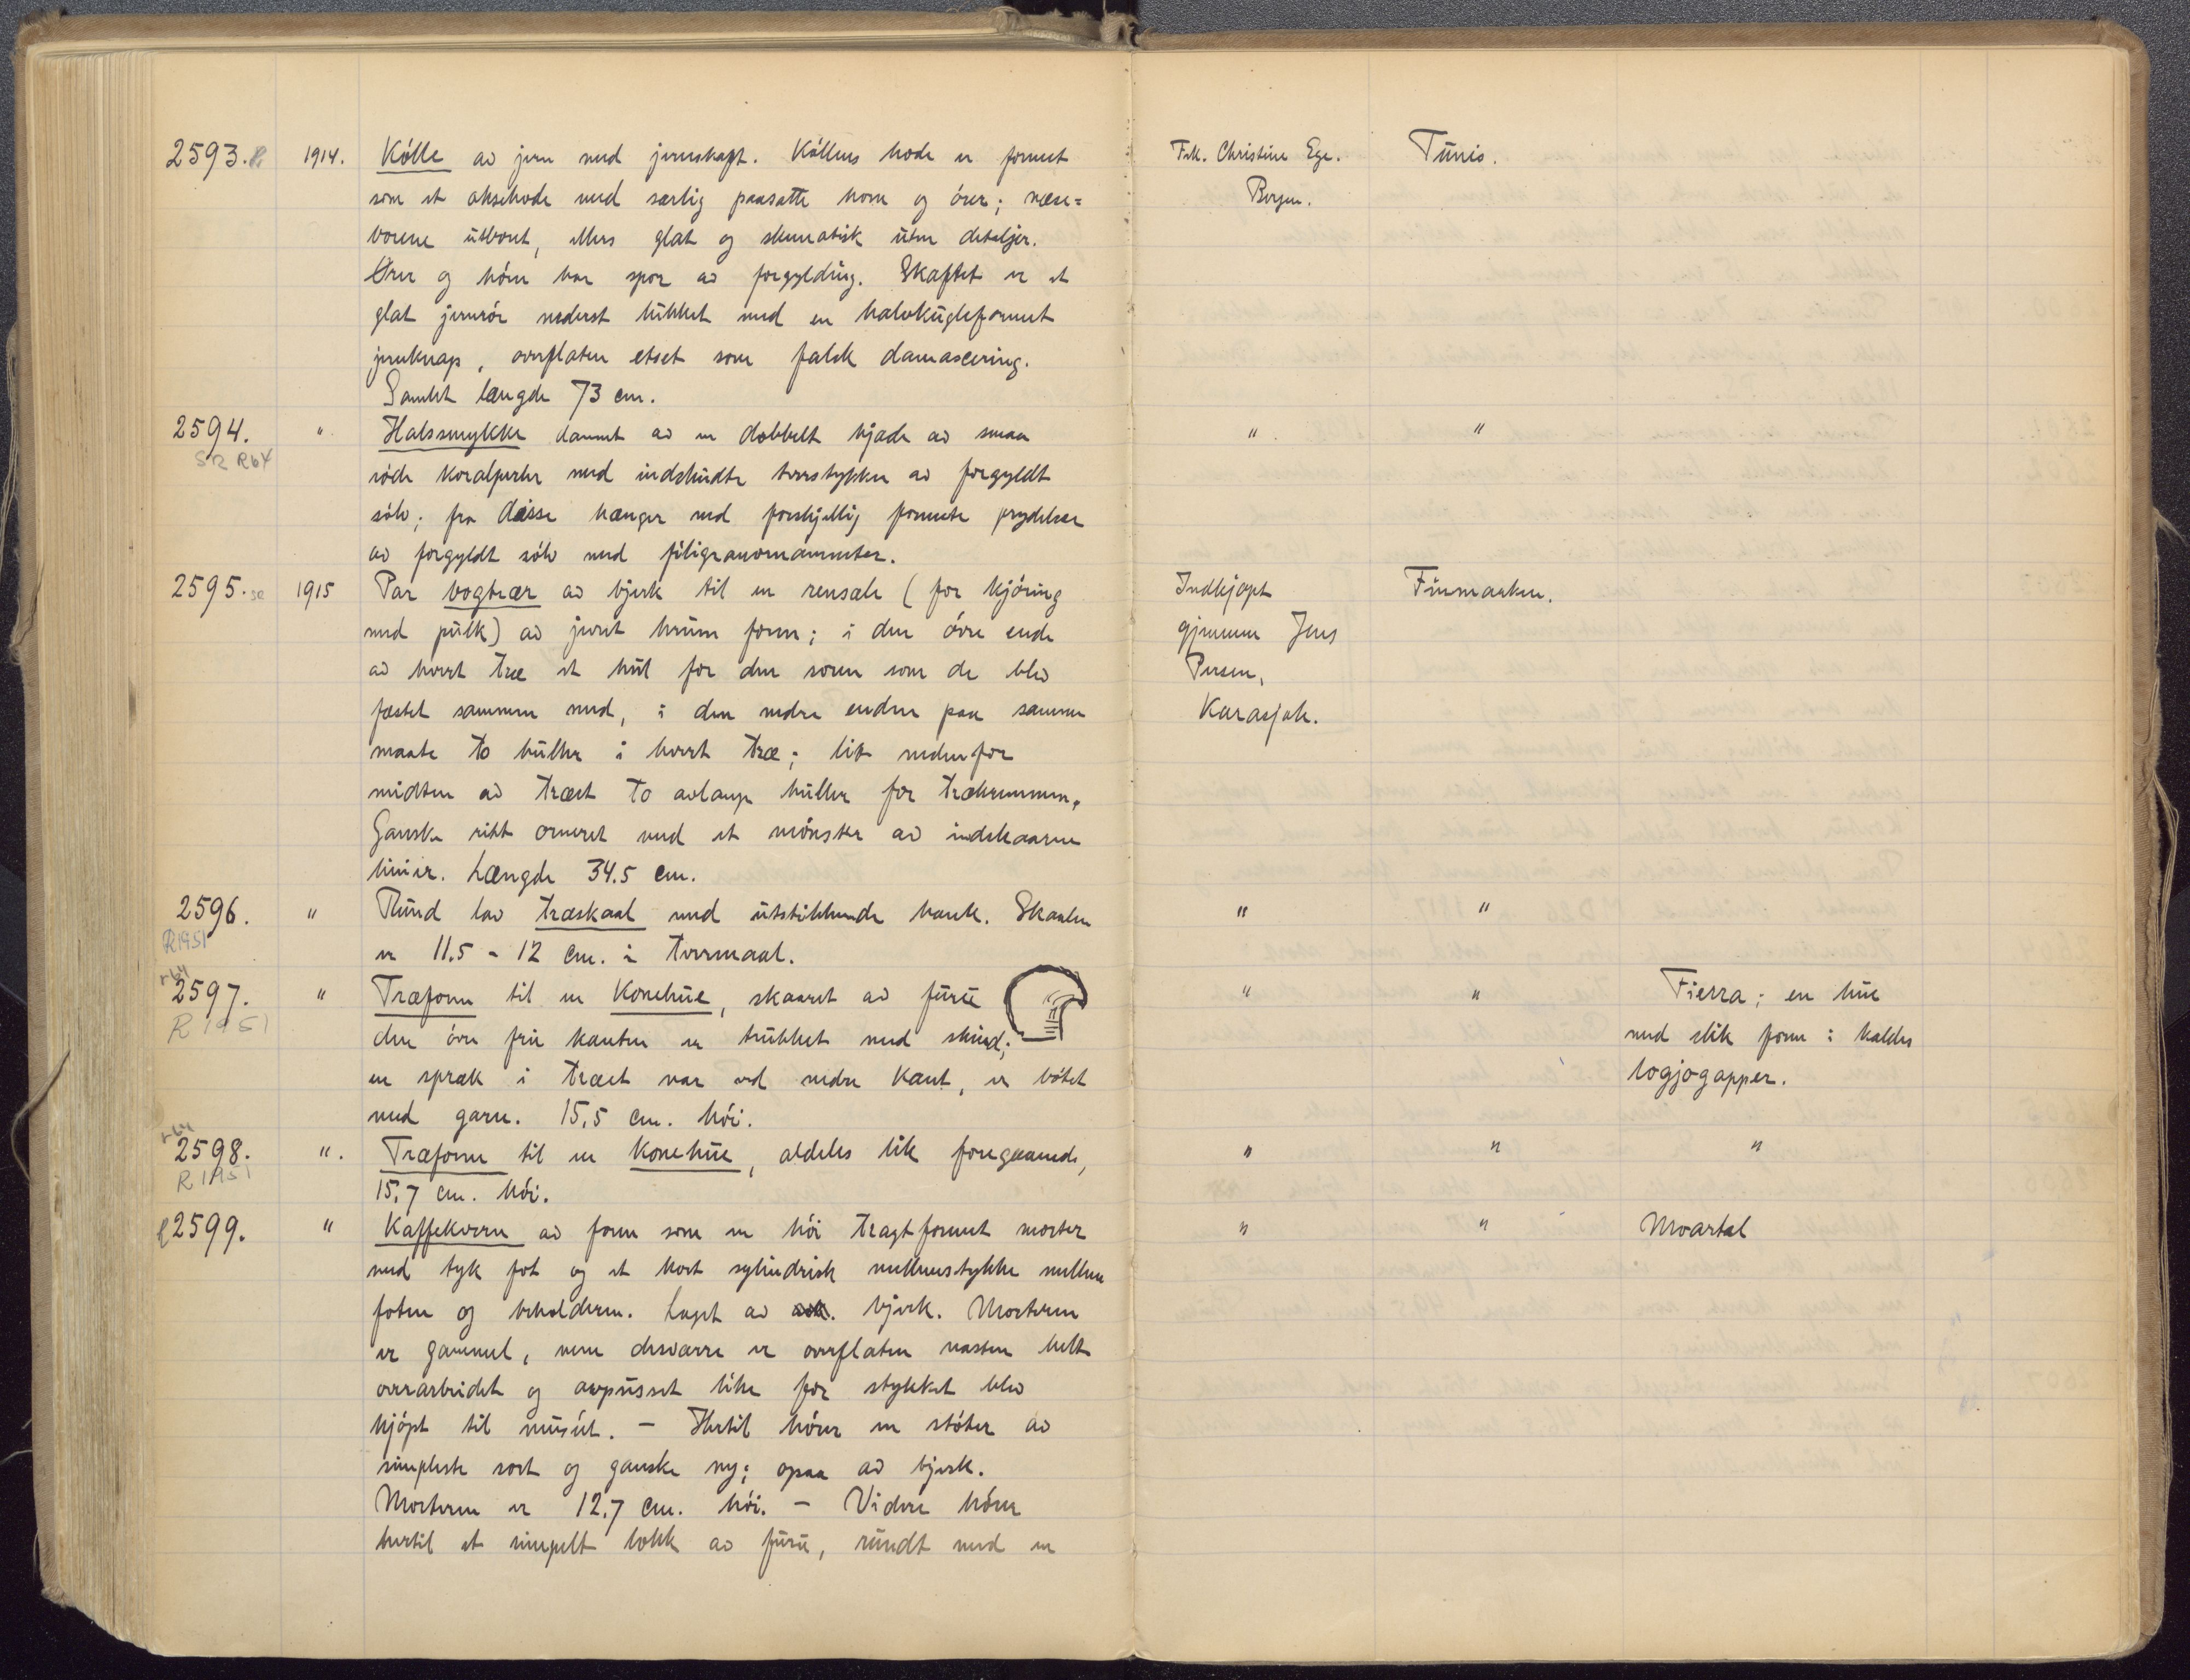 2593. R 1914. Kölle av jern med jernskapt. Köllens hode er formet Frk. Christine Ege. Tunis.
som et oksehode med særlig paasatte horn og örer; næse= Bergen.
borene utboret, ellers glat og skematisk uten detaljer.
Örer og hörn har spor av forgylding. Skaftet er et
glat jernrör nederst lukket med en halvkugleformet
jernknap, overflaten etset som falsk damascering.
Samlet længde 73 cm.
2594. " Halssmykke dannet av en dobbelt kjæde av smaa " "
SR R64
röde koralperler med indskudte tverstykker av forgyldt
sölv; fra disse hænger ned forskjellig formete prydelser
av forgyldt sölv med filigranornamenter.
2595. 1915 Par bogtrær av bjerk til en rensæle (for kjöring Indkjøpt Finmarken.
med pulk) av jevnt krum form; i den övre ende gjennem Jens
av hvert træ et hul for den rem som de blev Persen,
fæstet sammen med, i den nedre enden paa samme Karasjok.
maate to huller i hvert træ; litt nedenfor
midten av træet to avlange huller for trækremmen.
Ganske rikt orneret med et mönster av indskaarne
linier. Længde 34.5 cm.
2596. " Rund lav træskaal med utstikkende hank. Skaalen " "
R1951
er 11.5 - 12 cm. i tvermaal.
r64
2597. " Træform til en konehue, skaaret av furu " " Fierra; en hue
R 1951
den övre frie kanten er trukket med skind; med slik form: kaldes
en spræk i træet nær ved nedre kant, er bötet logjogapper.
med garn. 15,5 cm. höi.
r64
2598. ". Træform til en konehue, aldeles lik foregaaende, " " "
R 1951
15,7 cm. höi.
R 2599. " Kaffekvern av form som en höi tragtformet morter " " Moartal
med tyk fot og et kort sylindrisk mellemstykke mellem
foten og beholderen. Laget av bjerk. Morteren
er gammel, men desværre er overflaten næsten helt
overarbeidet og avpusset like för stykket blev
kjöpt til muséet. – Hertil hörer en stöter av
simpleste sort og ganske ny; ogsaa av bjerk.
Morteren er 12.7 cm. höi. – Videre hörer
hertil et simpelt lokk av furu, rundt med en